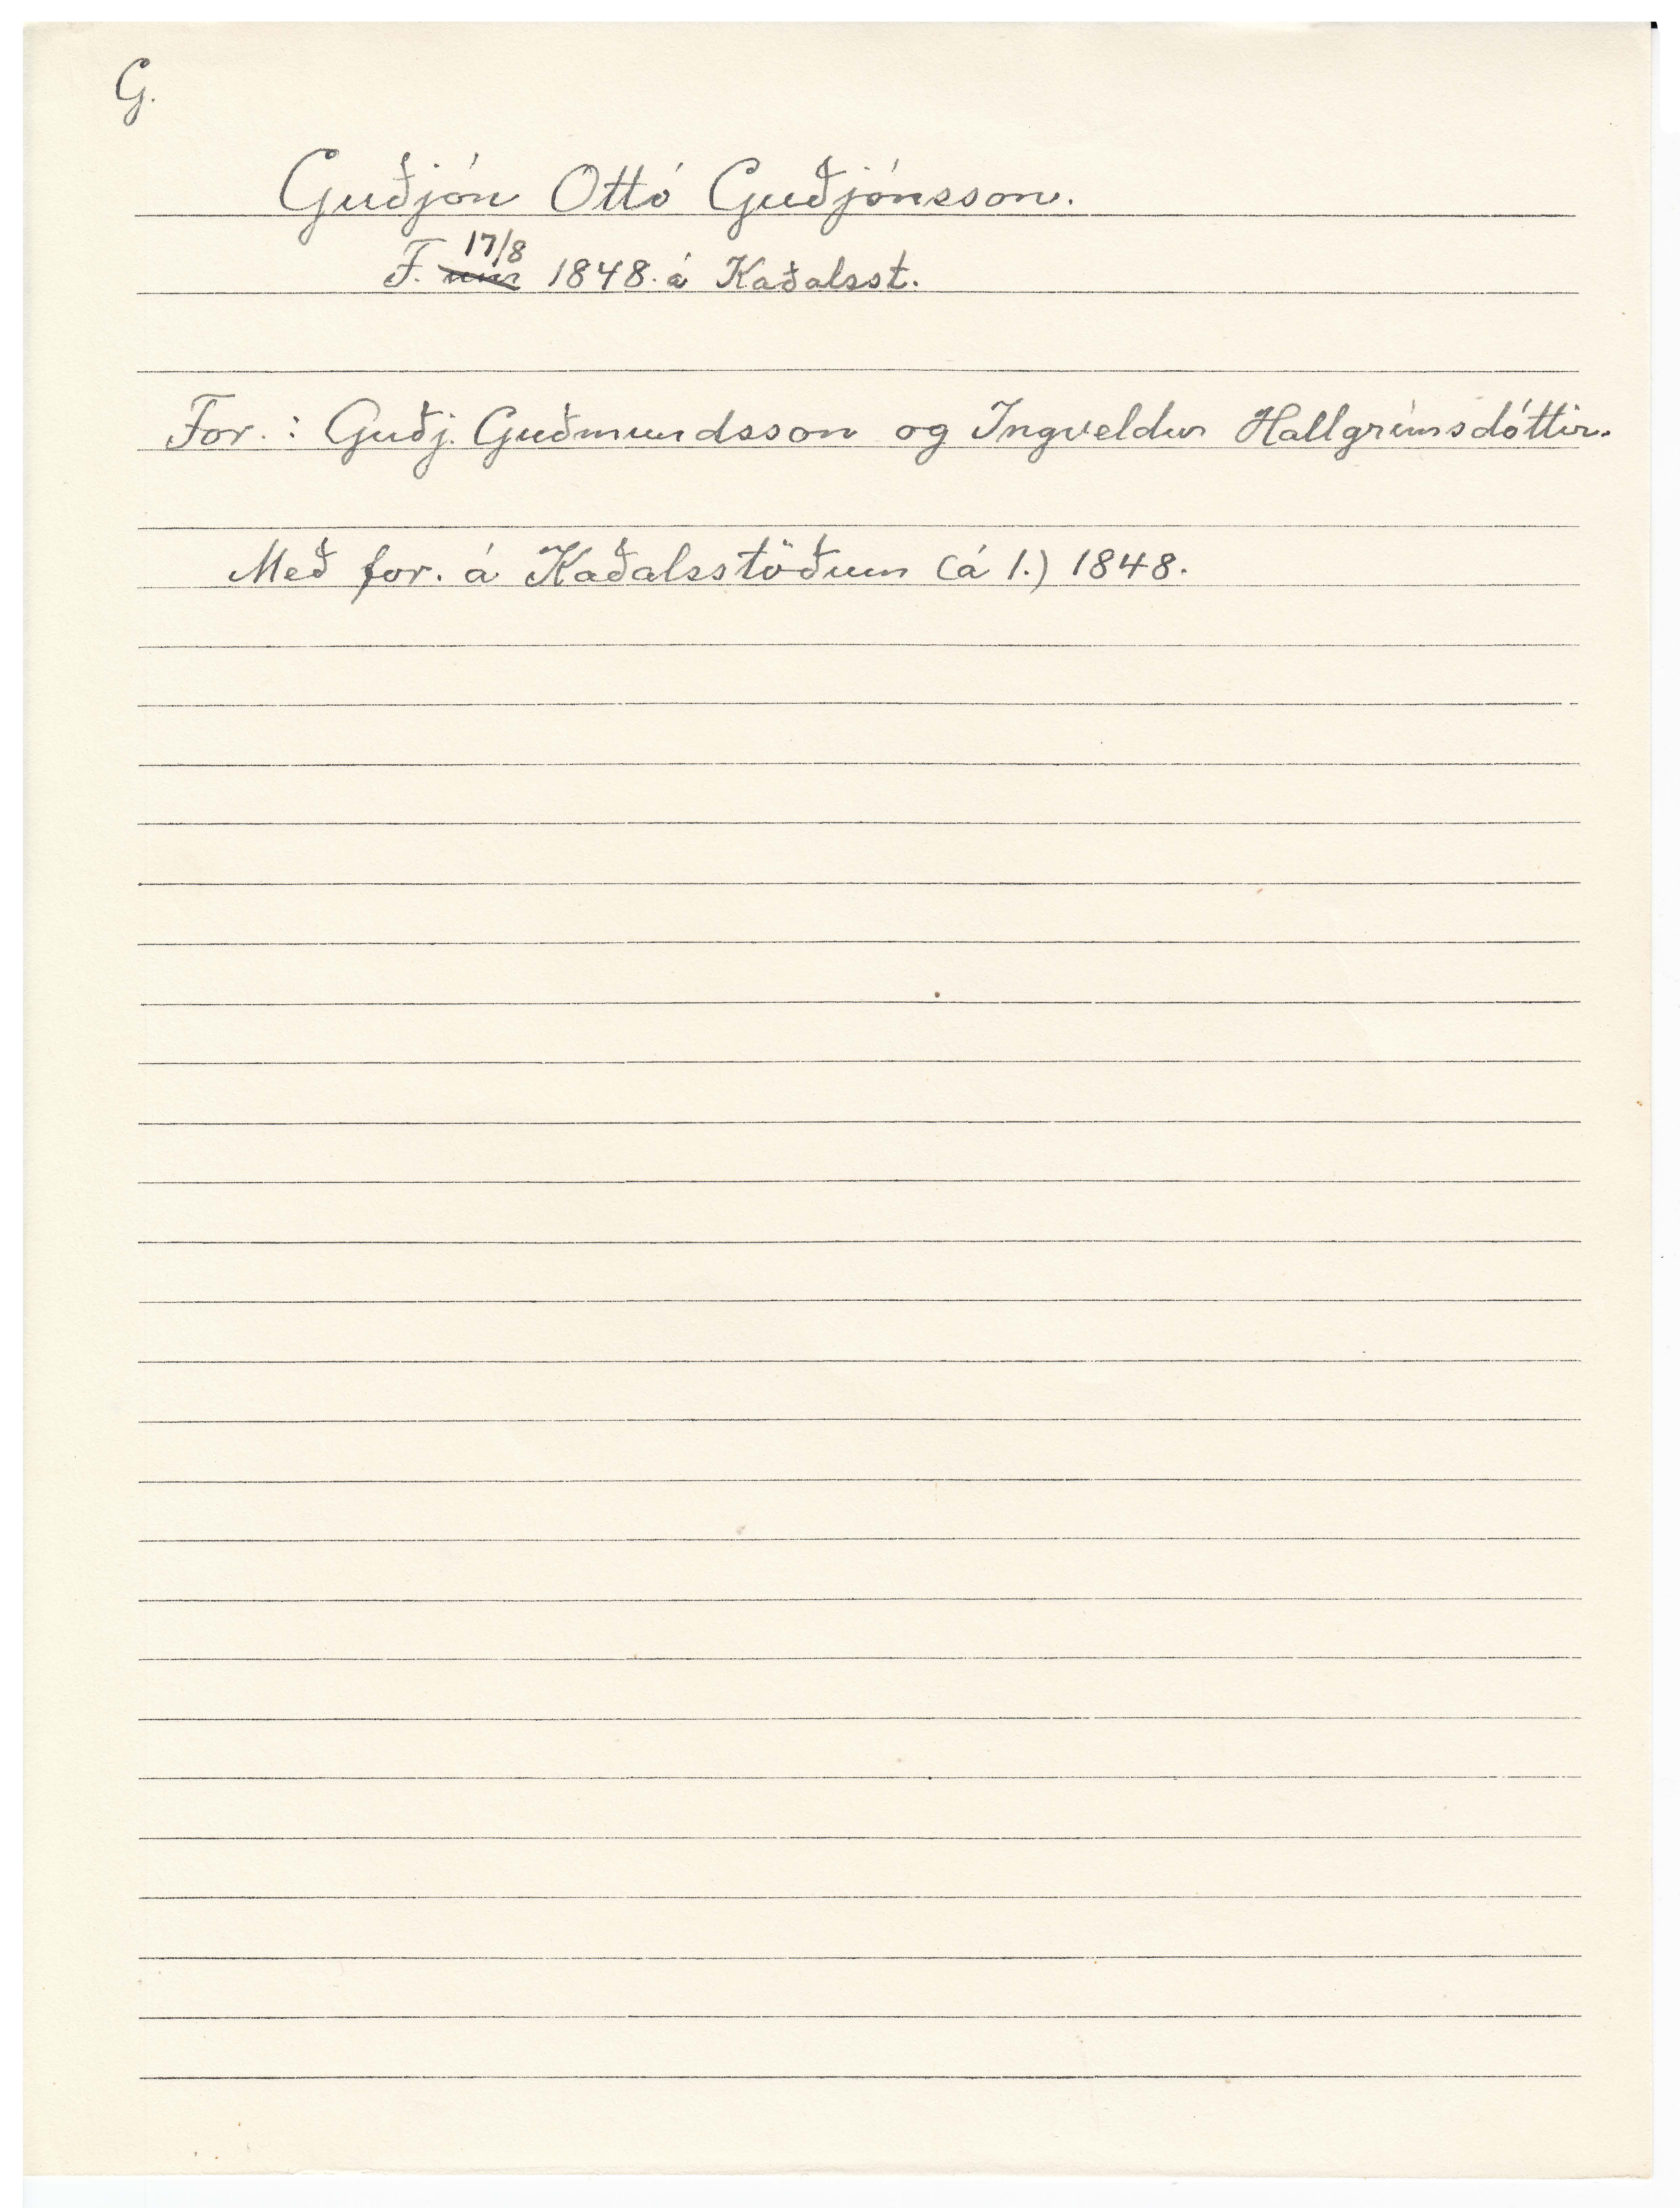 G.
Guðjón Ottó Guðjónsson.
17/8
F. 1848. á Kaðalsst.
For.: Guðj. Guðmundsson og Ingveldur Hallgrímsdóttir.
Með for. á Kaðalsstöðum (á 1.) 1848.